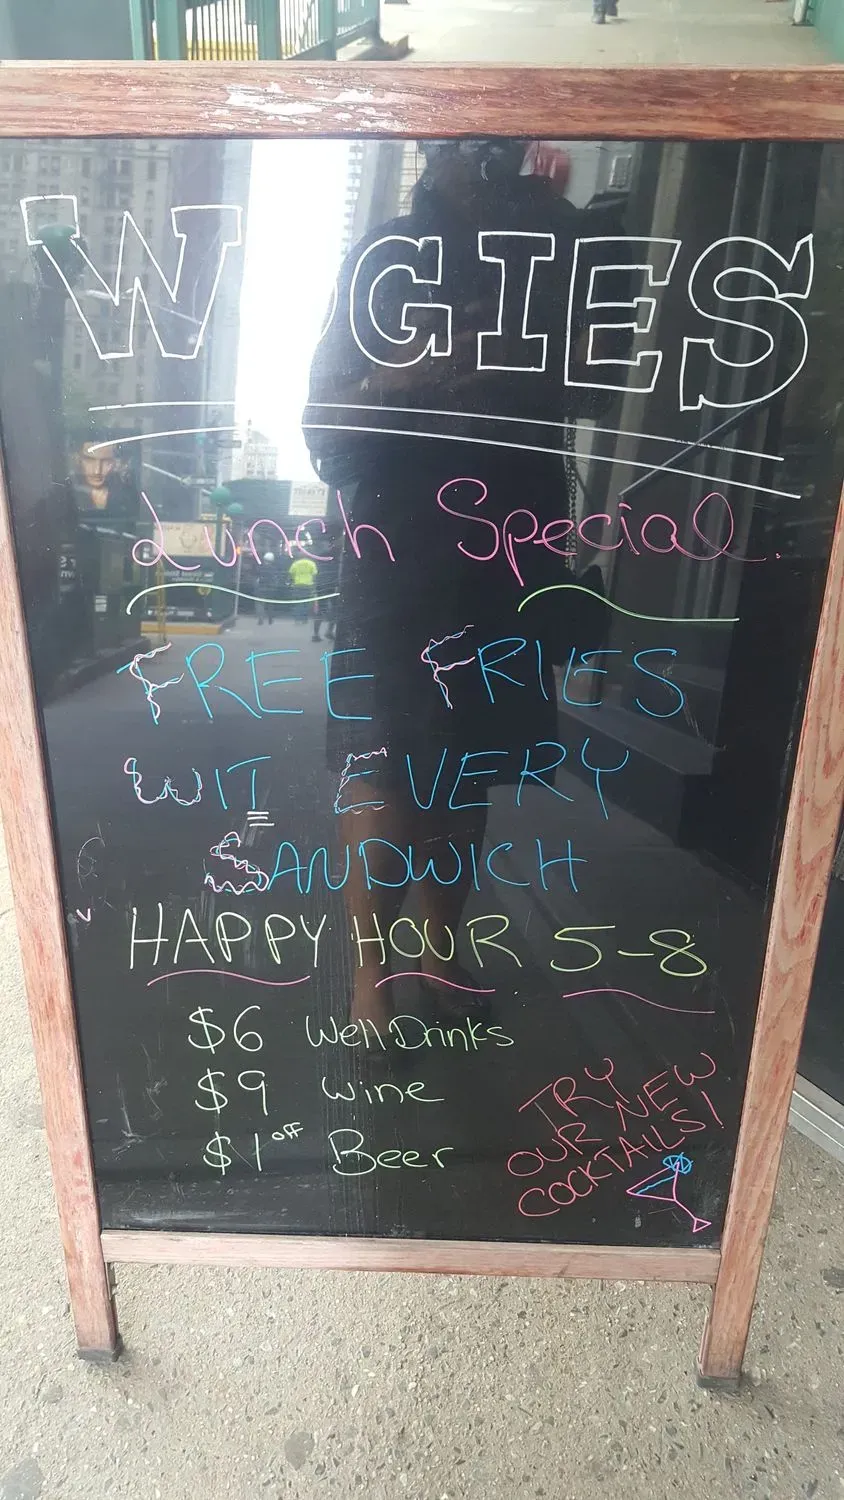 WOGIES
Lunch Special.
FREE FRIES
WIT EVERY
SANDWICH
HAPPY HOUR 5-8
$6 Well Drinks
$9 Wine
$1 off Beer
TRY
OUR NEW
COCKTAILS!